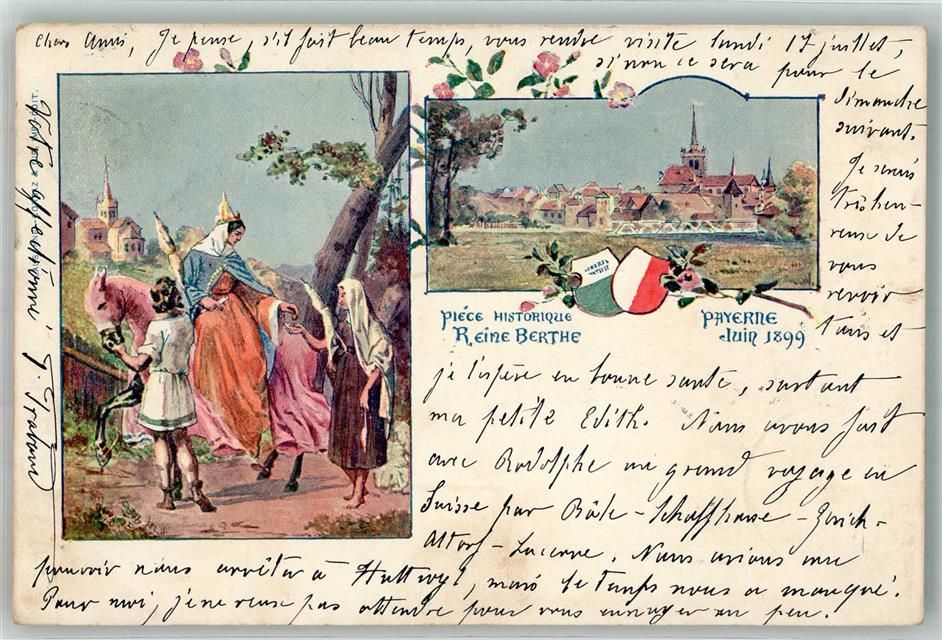 Chers Amis, Je pense, s'il fait beau temps, vous rendre visite lundi 17 juillet,
sinon ce sera pour le
dimanche
suivant.
Je serais
très heu-
reuse de
vous
revoir
tous et
PIÈCE HISTORIQUE
REINE BERTHE
PAYERNE
JUIN 1899
je l'espère en bonne santé, surtout
ma petite Edith. Nous avons fait
avec Rodolphe un grand voyage en
Suisse par Bâle - Schaffhouse - Zurich -
Altorf - Lucerne. Nous avions cru
pouvoir nous arrêter à Huttwyl, mais le temps nous a manqué.
Pour moi, je ne veux pas attendre pour vous ennuyer un peu.
Votre affectionné J.